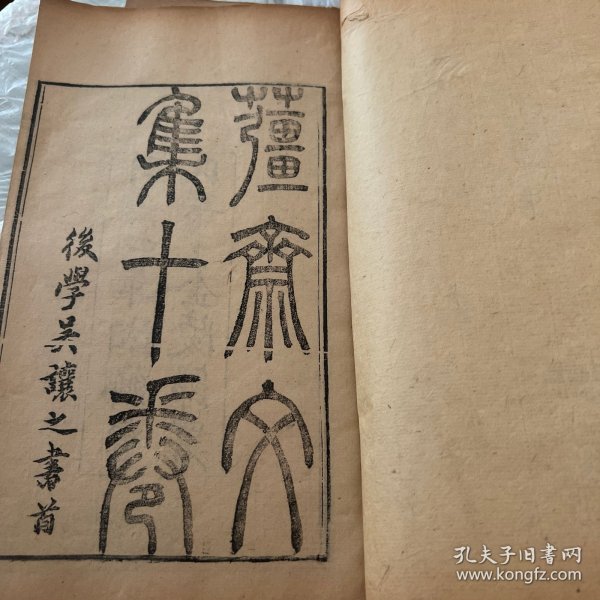 薑齋文
集十卷
後學吳讓之書首
孔夫子旧书网
www.kongfz.com